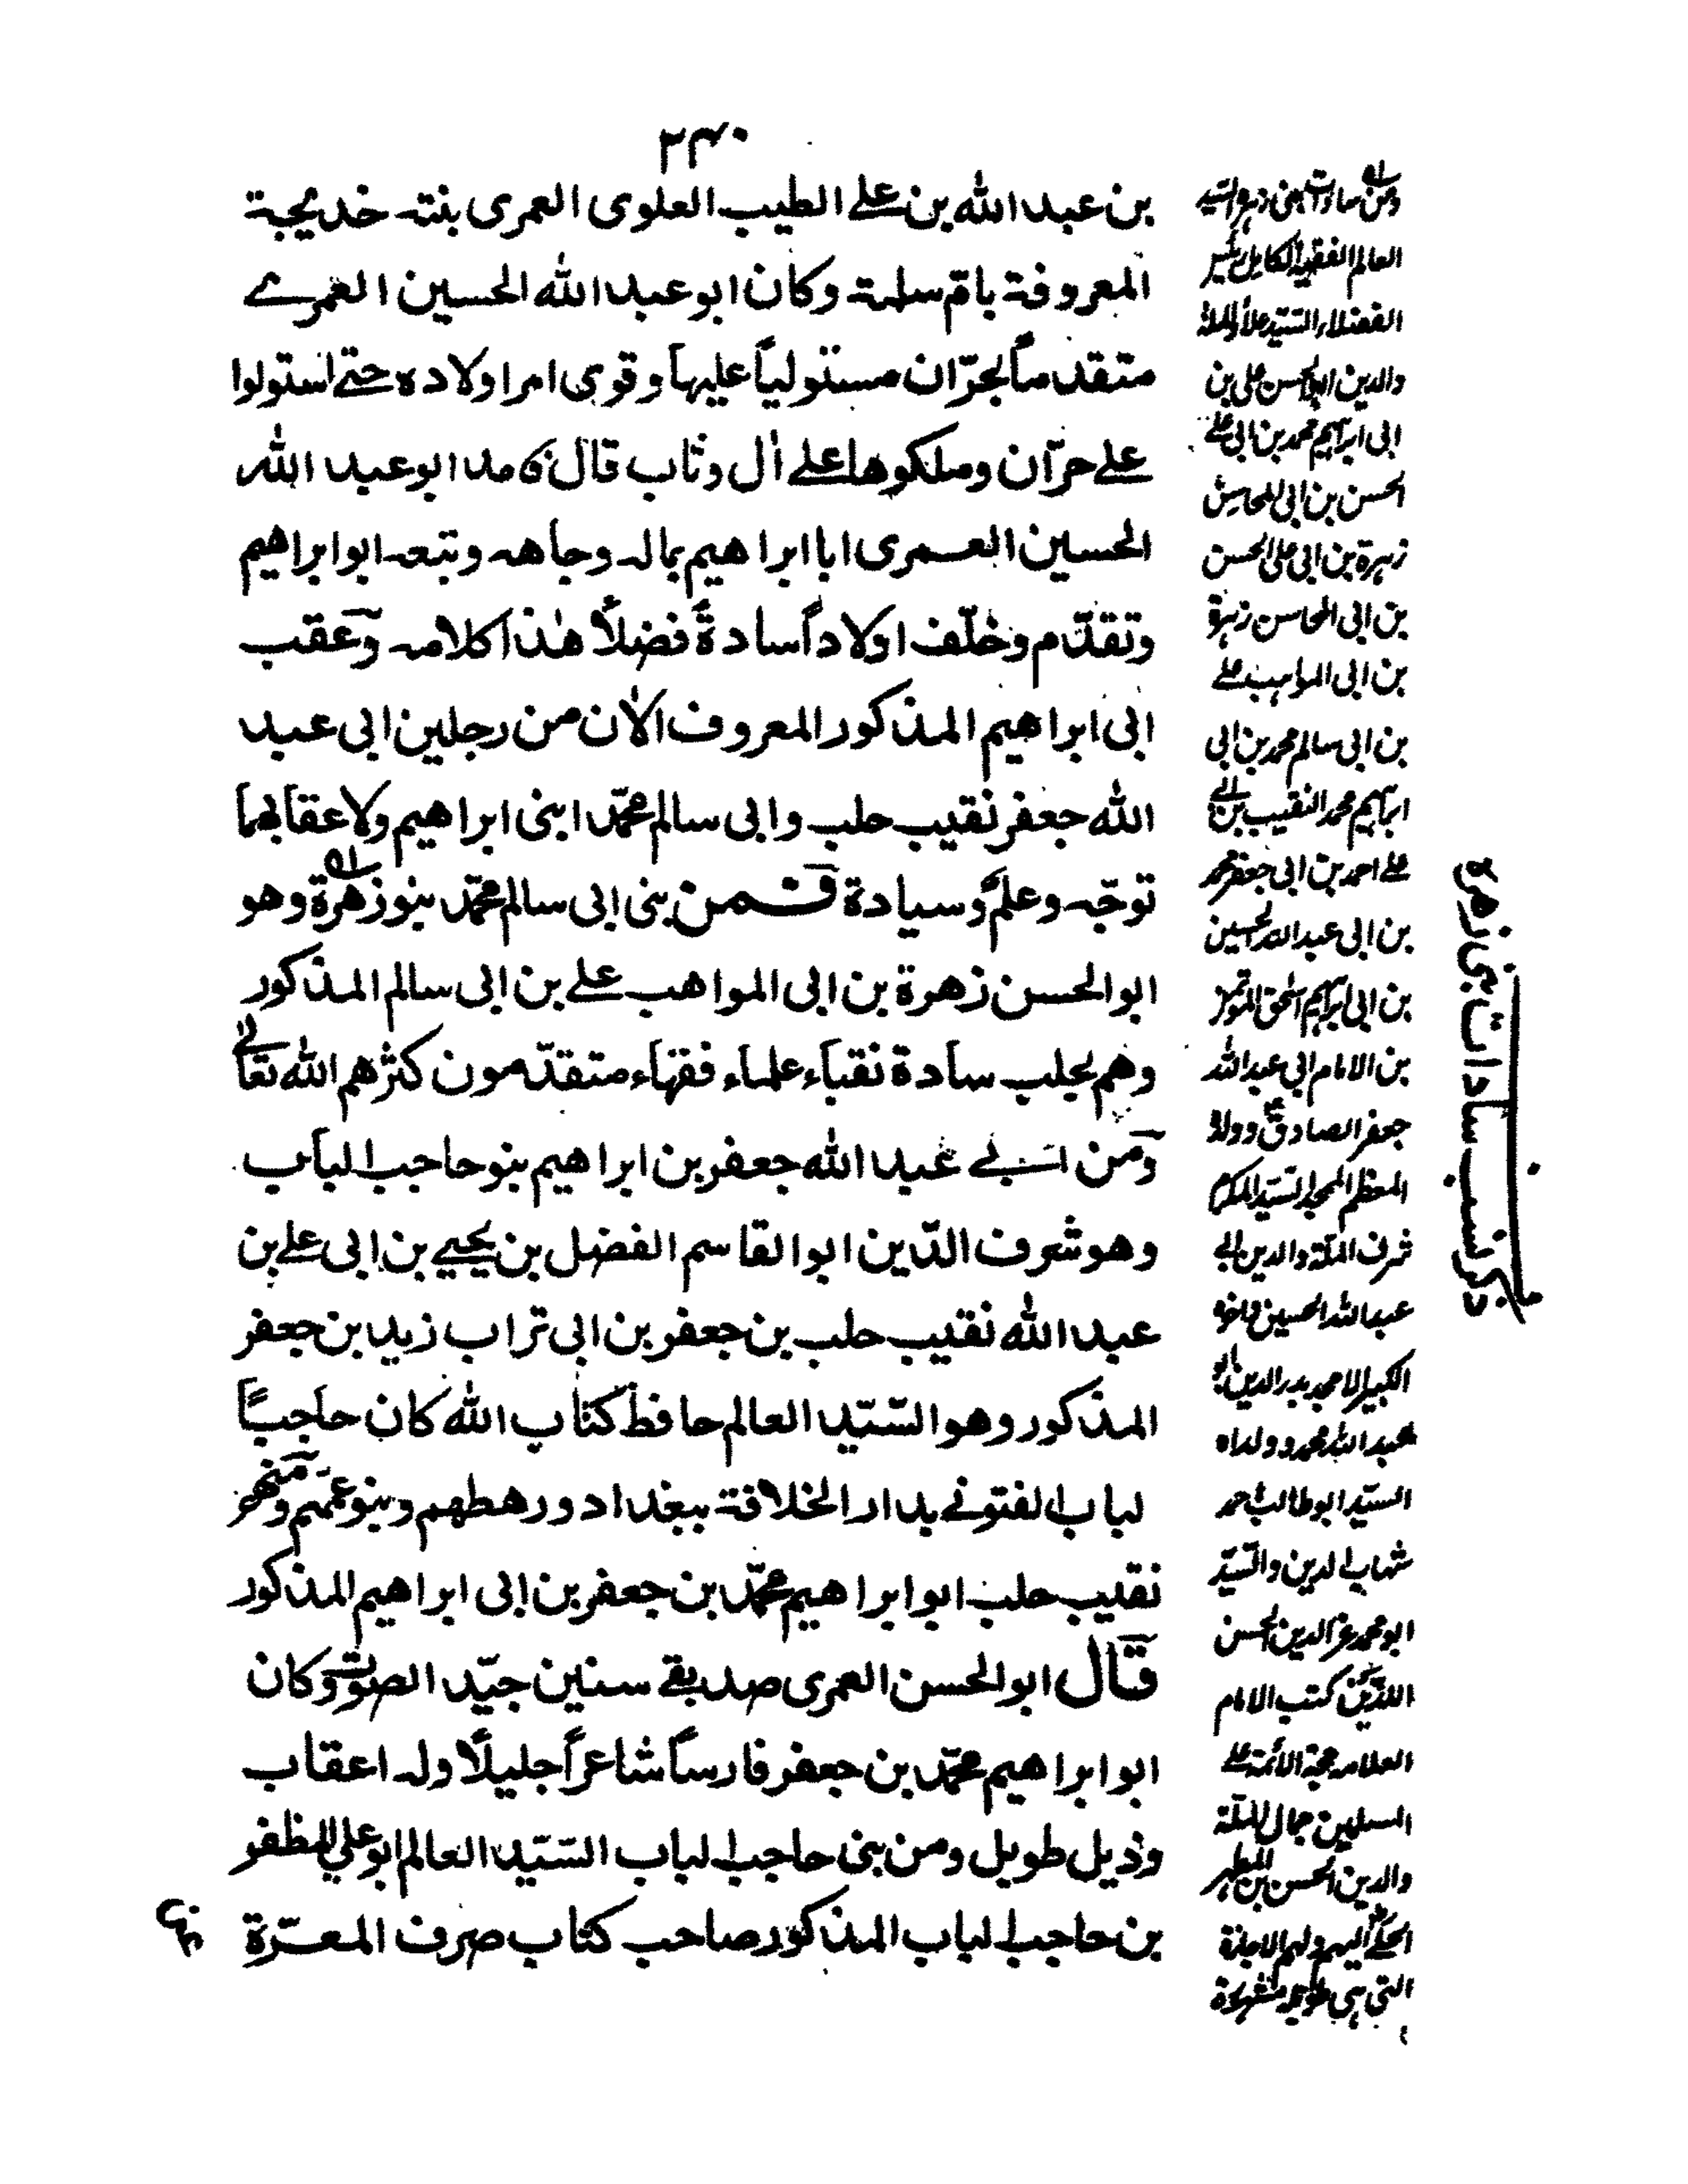 ٢٤٠
بن عبد الله بن علے الطيب العلوى العمرى بنته خديجة
المعروفة بامّ سلمة وكان ابو عبد الله الحسين العمرے
متقدماً بحرّان مستولياً عليها وقوى امر اولاده حتے استولوا
علے حرّان وملكوها علے اٰل وثاب قال فامد ابو عبد الله
الحسين العمرى ابا ابراهيم بماله وجاهه وتبعه ابو ابراهيم
وتقدّم وخلّف اولاداً سادةً فضلاً هٰذا كلامه وعقب
ابى ابراهيم المذكور المعروف الاٰن من رجلين ابى عبد
الله جعفر نقيب حلب وابى سالم محمّد ابنى ابراهيم ولاعقابهما
توجّه وعلم وسيادة فمن بنى ابى سالم محمّد بنو زهرة وهو
ابو الحسن زهرة بن ابى المواهب علے بن ابى سالم المذكور
وهم بحلب سادة نقباء علماء فقهاء متقدّمون كثرهم الله تعالٰے
ومن ابے عبد الله جعفر بن ابراهيم بنو حاجب الباب
وهو شرف الدّين ابو القاسم الفضل بن يحيے بن ابى علے بن
عبد الله نقيب حلب بن جعفر بن ابى تراب زيد بن جعفر
المذكور وهو السّيّد العالم حافظ كتاب الله كان حاجباً
لباب الفتونے بدار الخلافة ببغداد ورهطهم وبنو عمّهم ومنهم
نقيب حلب ابو ابراهيم محمّد بن جعفر بن ابى ابراهيم المذكور
قال ابو الحسن العمرى صديقے سنين جيّد الصوت وكان
ابو ابراهيم محمّد بن جعفر فارساً شاعراً جليلاً وله اعقاب
وذيل طويل ومن بنى حاجب الباب السّيّد العالم ابو علے المظفر
بن حاجب الباب المذكور صاحب كتاب صرف المعرّة
ومن سادات بنى زهرة السيد
العالم الفقيه الكامل
الفضلاء السّيّد علاء الملة
والدين ابو الحسن على بن
ابى ابراهيم محمد بن ابى علے
الحسن بن ابى المحاسن
زهرة بن ابى على الحسن
بن ابى المحاسن زهرة
بن ابى المواهب علے
بن ابى سالم محمد بن ابى
ابراهيم محمد النقيب بن ابے
علے احمد بن ابى جعفر محمد
بن ابى عبد الله الحسين
بن ابى ابراهيم اسحٰق المؤتمن
بن الامام ابى عبد الله
جعفر الصادقؑ وولده
المعظم الممجد السيّد المكرم
شرف الملّة والدين ابے
عبد الله الحسين واخوه
الكبير الامجد بدر الدين ابو
عبد الله محمد وولداه
السيّد ابو طالب احمد
شهاب الدين والسّيّد
ابو محمد عز الدين الحسن
اللذين كتب الامام
العلامه حجة الأئمة علے
المسلمين جمال الملّة
والدين الحسن بن المطهر
الحلے اليهم ولهم الاجازة
التى هى طويلة مشهورة
ذكر نسب سادات بنى زهرة